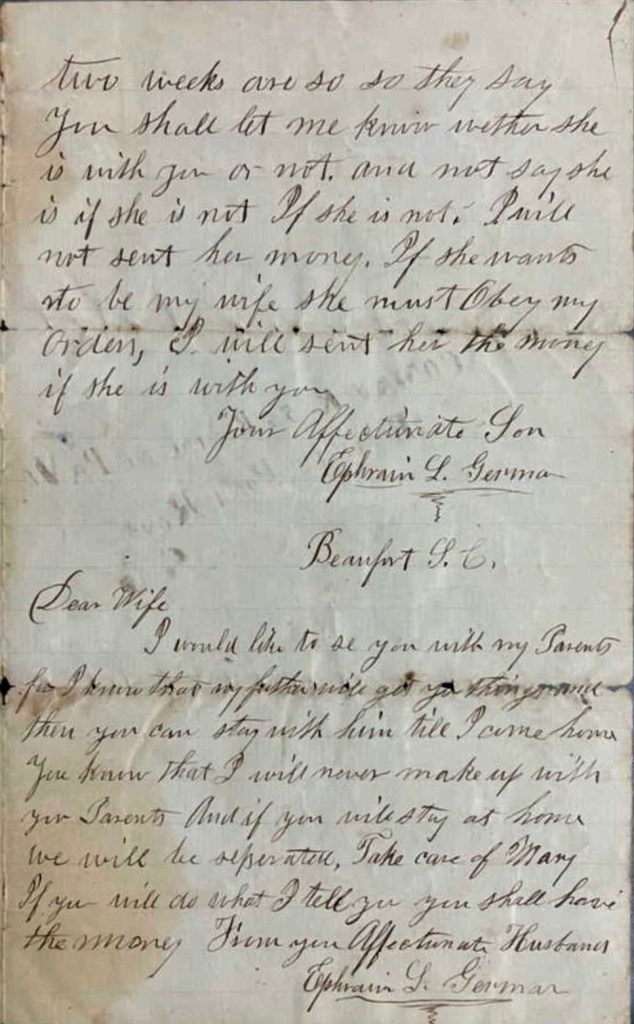 two weeks are so so they say
You shall let me know wether she
is with you or not. and not say she
is if she is not If she is not. I will
not sent her money. If she wants
to be my wife she must Obey my
Orders, I will sent her the money
if she is with you
Your Affectunate Son
Ephraim L. German
Beaufort S. C.
Dear Wife
I would like to se you with my Parents
for I know that my father will get yo things and
then you can stay with him till I come home
You know that I will never make up with
your Parents And if you will stay at home
we will be seperated, Take care of Mary
If you will do what I tell you you shall have
the money From you Affectunate Husband
Ephraim L. German